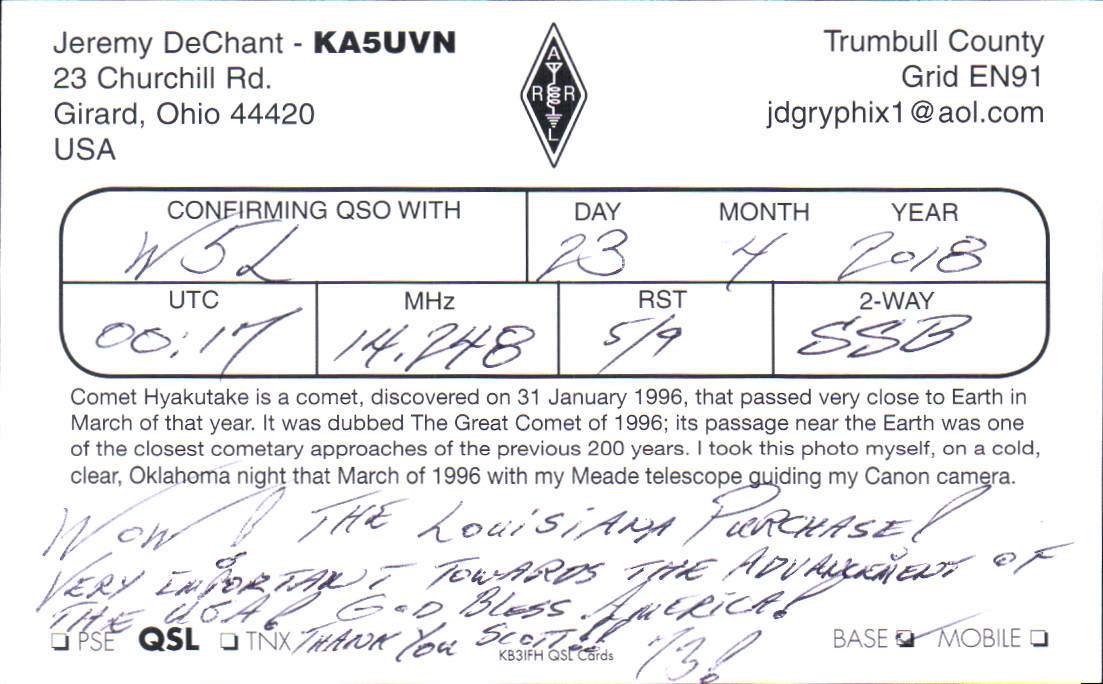 Jeremy DeChant - KA5UVN
23 Churchill Rd.
Girard, Ohio 44420
USA
A
R R
L
Trumbull County
Grid EN91
jdgryphix1@aol.com
CONFIRMING QSO WITH DAY MONTH YEAR
W5L 23 4 2018
UTC MHz RST 2-WAY
00:17 14.248 5/9 SSB
Comet Hyakutake is a comet, discovered on 31 January 1996, that passed very close to Earth in
March of that year. It was dubbed The Great Comet of 1996; its passage near the Earth was one
of the closest cometary approaches of the previous 200 years. I took this photo myself, on a cold,
clear, Oklahoma night that March of 1996 with my Meade telescope guiding my Canon camera.
WOW! THE LOUISIANA PURCHASE!
VERY IMPORTANT TOWARDS THE ADVANCEMENT OF
THE USA! GOD BLESS AMERICA!
THANK YOU SCOTT!! 73!
PSE QSL TNX BASE MOBILE
KB3IFH QSL Cards